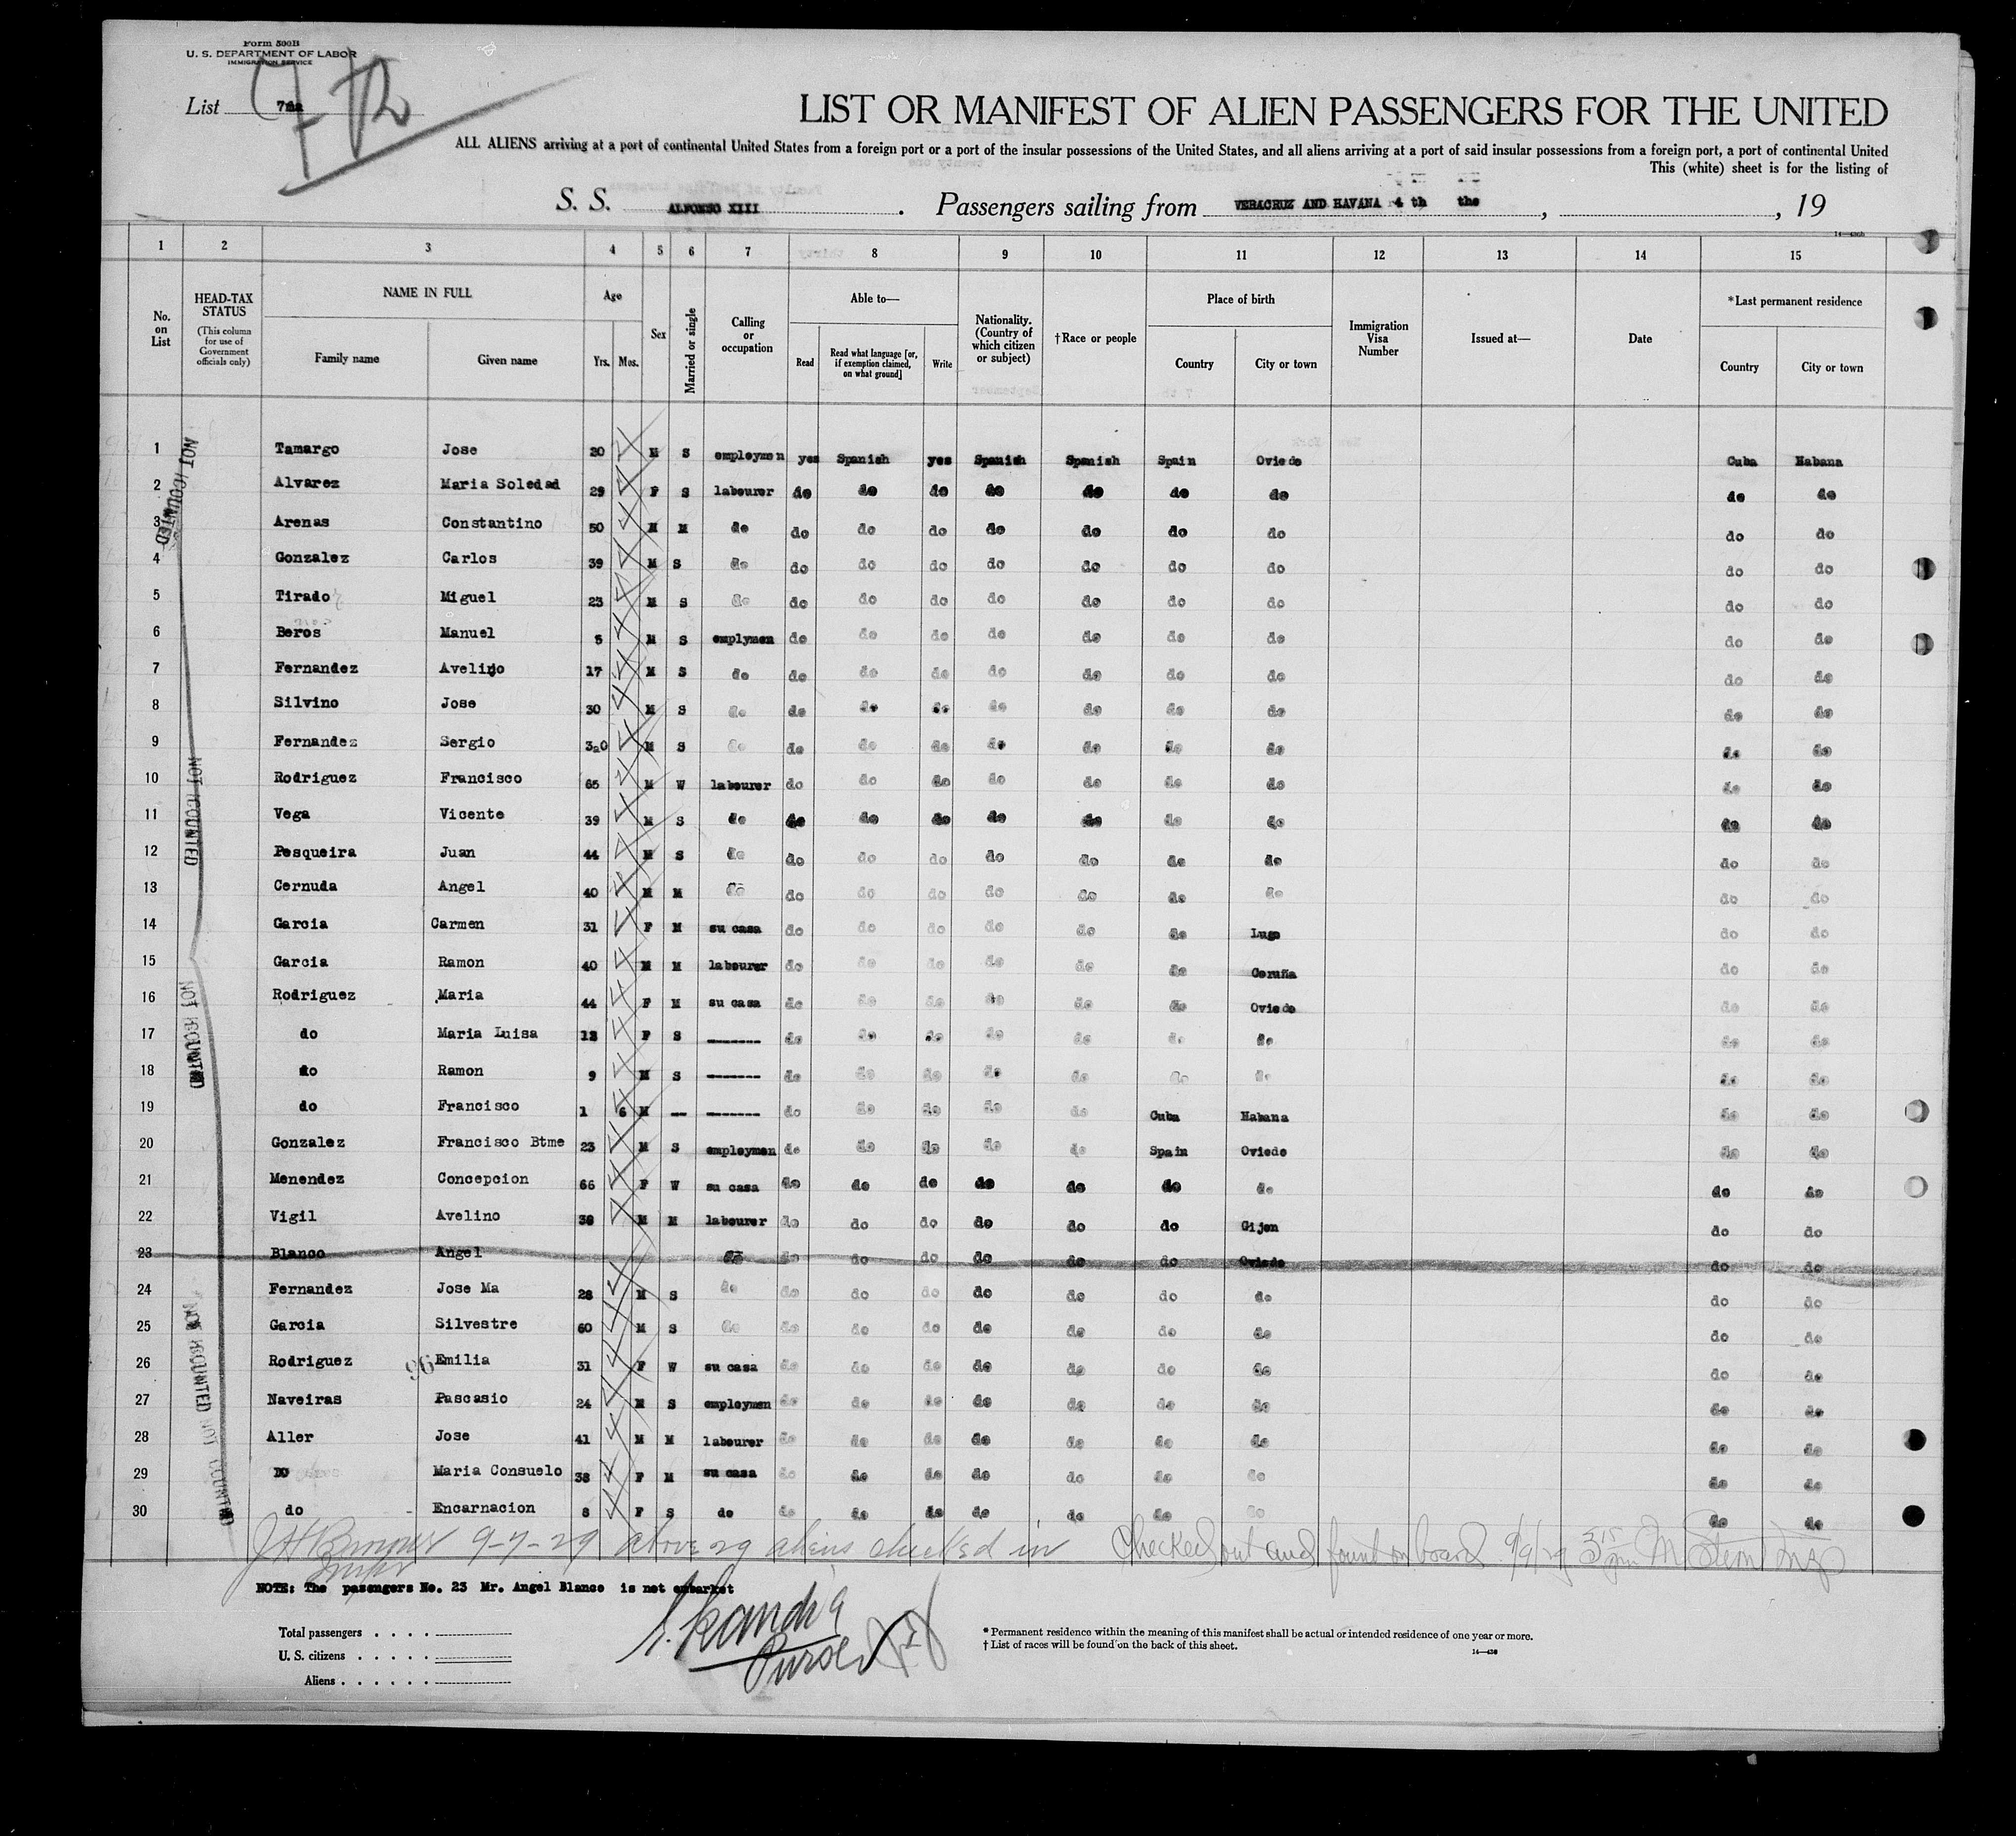 Form 500B
U. S. DEPARTMENT OF LABOR
IMMIGRATION SERVICE
List
LIST OR MANIFEST OF ALIEN PASSENGERS FOR THE UNITED
ALL ALIENS arriving at a port of continental United States from a foreign port or a port of the insular possessions of the United States, and all aliens arriving at a port of said insular possessions from a foreign port, a port of continental United
This (white) sheet is for the listing of
S. S. ALFONSO XIII. Passengers sailing from VERACRUZ AND HAVANA 4 th the , , 19
1 2 3 4 5 6 7 8 9 10 11 12 13 14 15
No. on List
HEAD-TAX STATUS (This column for use of Government officials only)
NAME IN FULL
Family name Given name
Age
Yrs. Mos.
Sex
Married or single
Calling or occupation
Able to—
Read
Read what language [or, if exemption claimed, on what ground]
Write
Nationality. (Country of which citizen or subject)
†Race or people
Place of birth
Country City or town
Immigration Visa Number
Issued at—
Date
*Last permanent residence
Country City or town
1 Tamargo Jose 20 M S employmen yes Spanish yes Spanish Spanish Spain Oviedo Cuba Habana
2 Alvarez Maria Soledad 29 F S labourer do do do do do do do do do
3 Arenas Constantino 50 M M do do do do do do do do do do
4 Gonzalez Carlos 39 M S do do do do do do do do do do
5 Tirado Miguel 23 M S do do do do do do do do do do
6 Beros Manuel 5 M S emplymen do do do do do do do do do
7 Fernandez Avelino 17 M S do do do do do do do do do do
8 Silvino Jose 30 M S do do do do do do do do do do
9 Fernandez Sergio M S do do do do do do do do do do
10 Rodriguez Francisco 65 M W labourer do do do do do do do do do
11 Vega Vicente 39 M S do do do do do do do do do do
12 Pesqueira Juan 44 M S do do do do do do do do do do
13 Cernuda Angel 40 M M do do do do do do do do do do
14 Garcia Carmen 31 F M su casa do do do do do do Lugo do do
15 Garcia Ramon 40 M M labourer do do do do do do Coruña do do
16 Rodriguez Maria 44 F M su casa do do do do do do Oviedo do do
17 do Maria Luisa F S ------- do do do do do do do do do
18 do Ramon 9 M S ------- do do do do do do do do do
19 do Francisco 1 6 M -- ------- do do do do do Cuba Habana do do
20 Gonzalez Francisco Btme 23 M S employmen do do do do do Spain Oviedo do do
21 Menendez Concepcion 66 F W su casa do do do do do do do do do
22 Vigil Avelino M M labourer do do do do do do Gijon do do
23 Blanco Angel do do do do do do do Oviedo do do
24 Fernandez Jose Ma 28 M S do do do do do do do do do do
25 Garcia Silvestre 60 M S do do do do do do do do do do
26 Rodriguez 96 Emilia 31 F W su casa do do do do do do do do do
27 Naveiras Pascasio 24 M S employmen do do do do do do do do do
28 Aller Jose 41 M M labourer do do do do do do do do do
29 DO Maria Consuelo 38 F M su casa do do do do do do do do do
30 do Encarnacion 8 F S do do do do do do do do do do
9-7-29 above 29 aliens checked in Checked out and found on board 9/9/29
NOTE: The passengers No. 23 Mr. Angel Blanco is not embarket
Purser
Total passengers
U. S. citizens
Aliens
* Permanent residence within the meaning of this manifest shall be actual or intended residence of one year or more.
† List of races will be found on the back of this sheet.